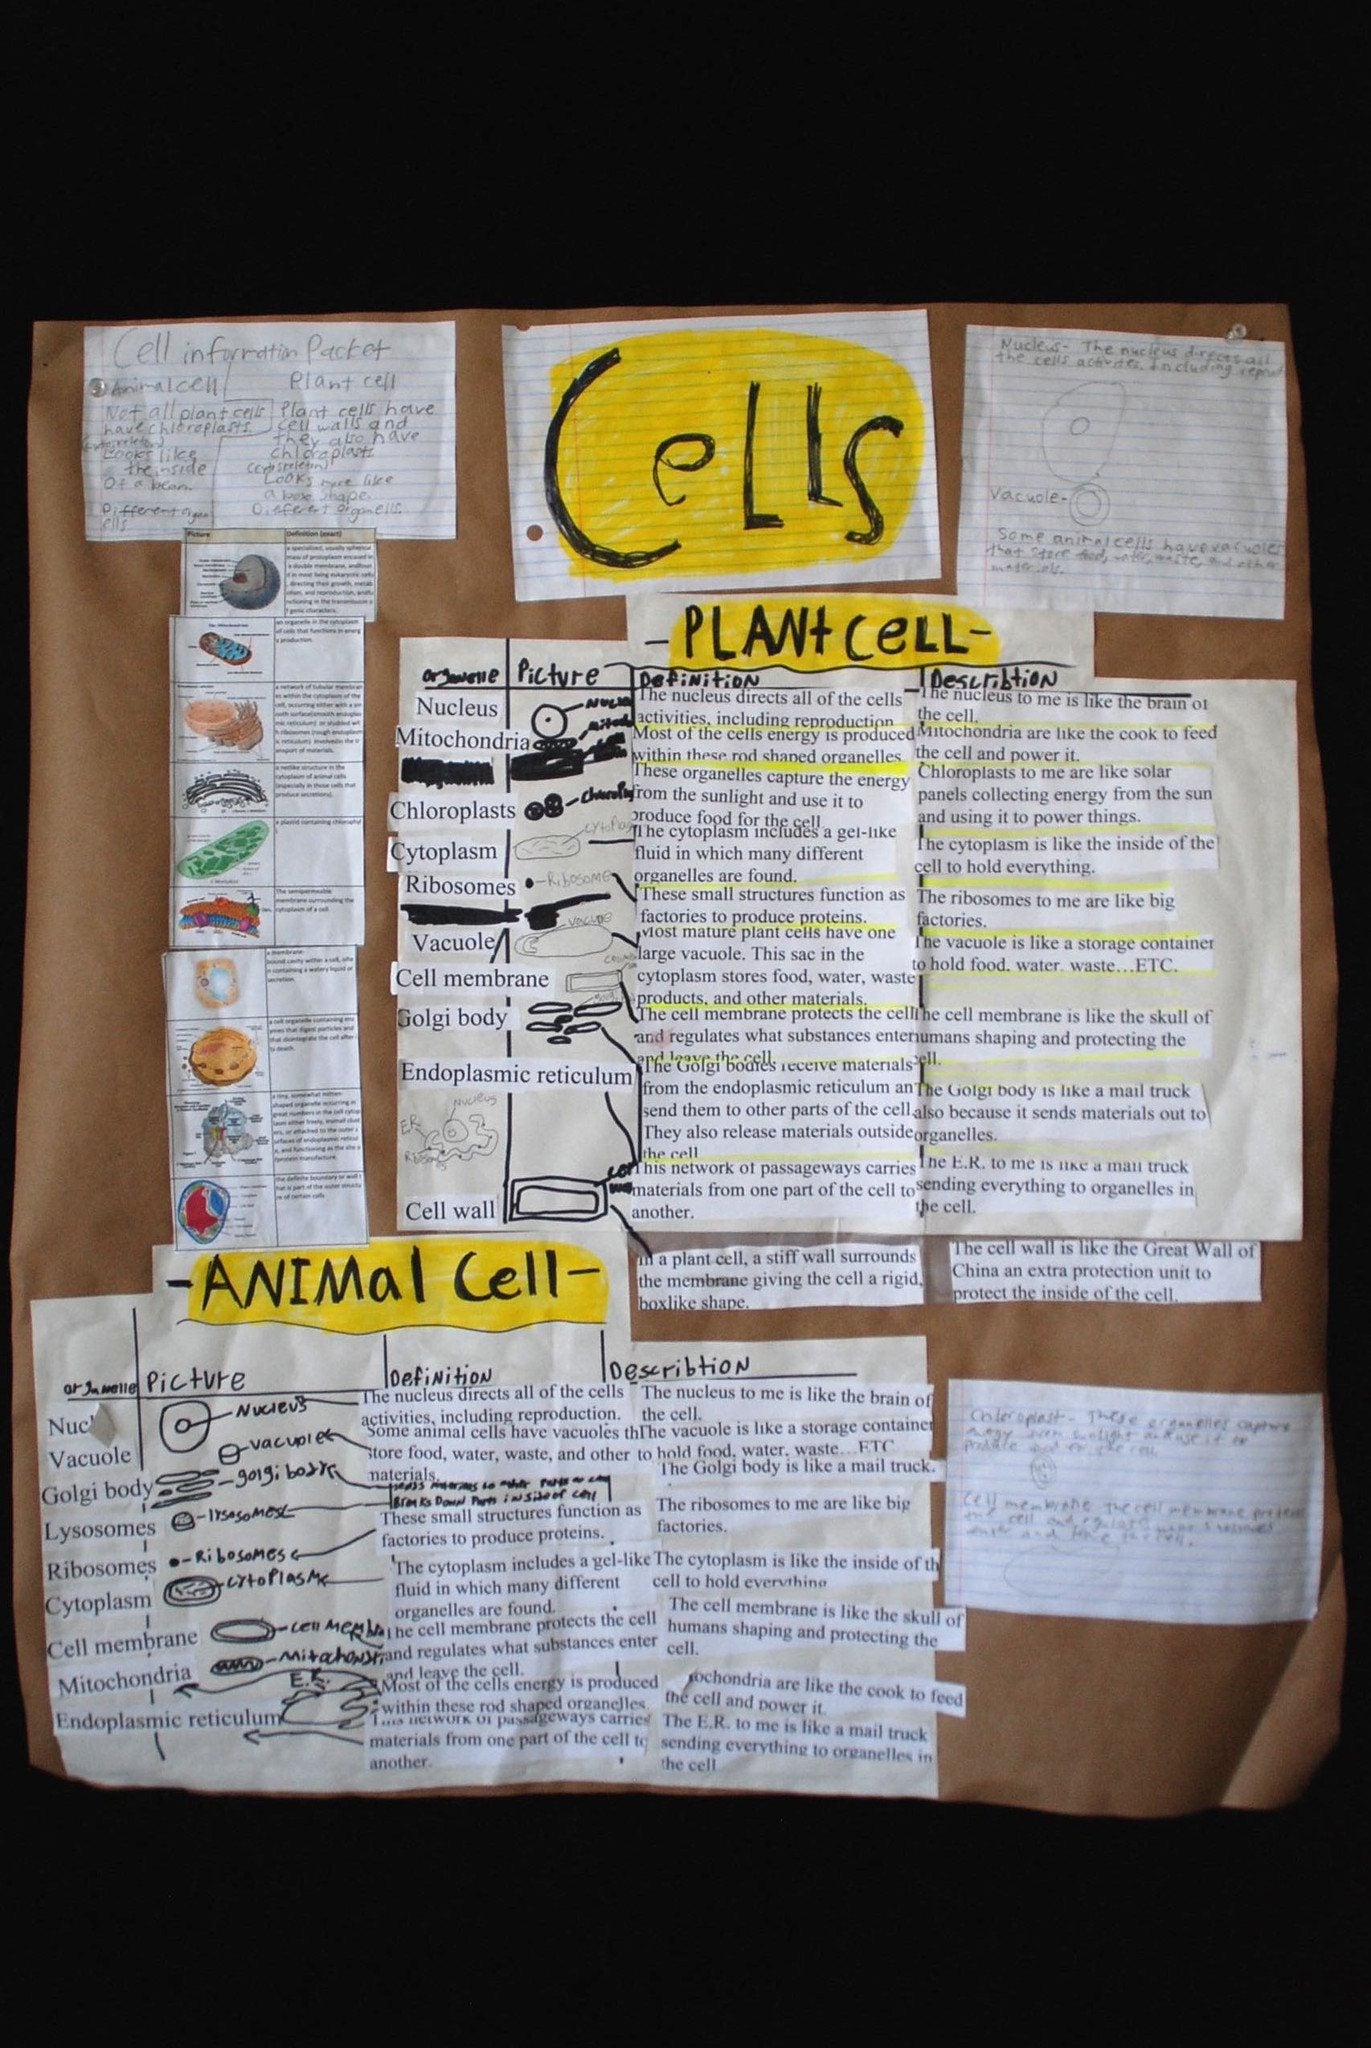 Cell information Packet
Animal cell
Plant cell
Not all plant cells
have chloroplasts.
Looks like
the inside
Of a bean.
Different organ
ells
Plant cells have
cell walls and
they also have
chloroplasts
Looks more like
a box shape.
Different organells.
CeLLS
Nucleus- The nucleus directs all
the cells activites. Including
Vacuole-
Some animal cells have vacuoles
that store food, water, waste, and other
materials.
Picture
Definition (exact)
a specialized, usually spherical
mass of protoplasm encased in
a double membrane, and found
in most living eukaryotic cells,
directing their growth, metab
olism, and reproduction, and fu
nctioning in the transmission o
f genic characters.
an organelle in the cytoplasm
of cells that functions in energ
y production.
a network of tubular membran
es within the cytoplasm of the
cell, occurring either with a sm
ooth surface(smooth endoplas
mic reticulum) or studded wit
h ribosomes (rough endoplasm
ic reticulum) involved in the tr
ansport of materials.
a netlike structure in the
cytoplasm of animal cells
(especially in those cells that
produce secretions).
a plastid containing chlorophyl
l
The semipermeable
membrane surrounding the
cytoplasm of a cell.
a membrane-
bound cavity within a cell, ofte
n containing a watery liquid or
secretion.
a cell organelle containing enz
ymes that digest particles and
that disintegrate the cell after i
ts death.
the definite boundary or wall t
hat is part of the outer structur
e of certain cells
-PLANt CeLL-
organelle
Picture
Definition
Describtion
Nucleus
Nucleus
The nucleus directs all of the cells
activities, including reproduction
The nucleus to me is like the brain of
the cell.
Mitochondria
Most of the cells energy is produced
within these rod shaped organelles
Mitochondria are like the cook to feed
the cell and power it.
Chloroplasts
These organelles capture the energy
from the sunlight and use it to
produce food for the cell
Chloroplasts to me are like solar
panels collecting energy from the sun
and using it to power things.
Cytoplasm
cytoplas
The cytoplasm includes a gel-like
fluid in which many different
organelles are found.
The cytoplasm is like the inside of the
cell to hold everything.
Ribosomes
-Ribosome
These small structures function as
factories to produce proteins.
The ribosomes to me are like big
factories.
Vacuole
vacuole
Most mature plant cells have one
large vacuole. This sac in the
cytoplasm stores food, water, waste
products, and other materials.
The vacuole is like a storage container
to hold food, water, waste...ETC.
Cell membrane
The cell membrane protects the cell
and regulates what substances enter
and leave the cell.
The cell membrane is like the skull of
humans shaping and protecting the
cell.
Golgi body
The Golgi bodies receive materials
from the endoplasmic reticulum an
send them to other parts of the cell.
They also release materials outside
the cell
The Golgi body is like a mail truck
also because it sends materials out to
organelles.
Endoplasmic reticulum
Nucleus
ER
This network of passageways carries
materials from one part of the cell to
another.
The E.R. to me is like a mail truck
sending everything to organelles in
the cell.
Cell wall
In a plant cell, a stiff wall surrounds
the membrane giving the cell a rigid,
boxlike shape.
The cell wall is like the Great Wall of
China an extra protection unit to
protect the inside of the cell.
-ANIMaL Cell-
organelle
Picture
Definition
Describtion
Nuc
Nucleus
The nucleus directs all of the cells
activities, including reproduction.
The nucleus to me is like the brain of
the cell.
Vacuole
vacuole
Some animal cells have vacuoles th
store food, water, waste, and other
materials.
The vacuole is like a storage container
to hold food, water, waste...ETC
Golgi body
-golgi body
The Golgi body is like a mail truck.
Lysosomes
-lysosomes
Breaks Down Parts inside of cell
Ribosomes
-Ribosomes
These small structures function as
factories to produce proteins.
The ribosomes to me are like big
factories.
Cytoplasm
cytoplasm
The cytoplasm includes a gel-like
fluid in which many different
organelles are found.
The cytoplasm is like the inside of th
cell to hold everything
Cell membrane
-cell Membra
The cell membrane protects the cell
and regulates what substances enter
and leave the cell.
The cell membrane is like the skull of
humans shaping and protecting the
cell.
Mitochondria
-Mitochondri
Most of the cells energy is produced
within these rod shaped organelles.
ochondria are like the cook to feed
the cell and power it.
Endoplasmic reticulum
E.R.
This network of passageways carries
materials from one part of the cell to
another.
The E.R. to me is like a mail truck
sending everything to organelles in
the cell
Chloroplast- These organelles capture
energy from sunlight and use it to
produce food for the cell.
Cell membrane- The cell membrane protects
the cell and regulates what substances
enter and leave the cell.